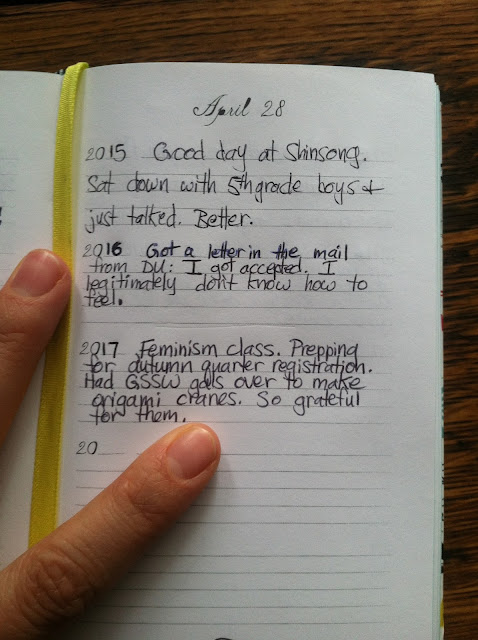 April 28
2015 Good day at Shinsong.
Sat down with 5th grade boys +
just talked. Better.
2016 Got a letter in the mail
from DU: I got accepted. I
legitimately don't know how to
feel.
2017 Feminism class. Prepping
for autumn quarter registration.
Had GSSW gals over to make
origami cranes. So grateful
for them.
20